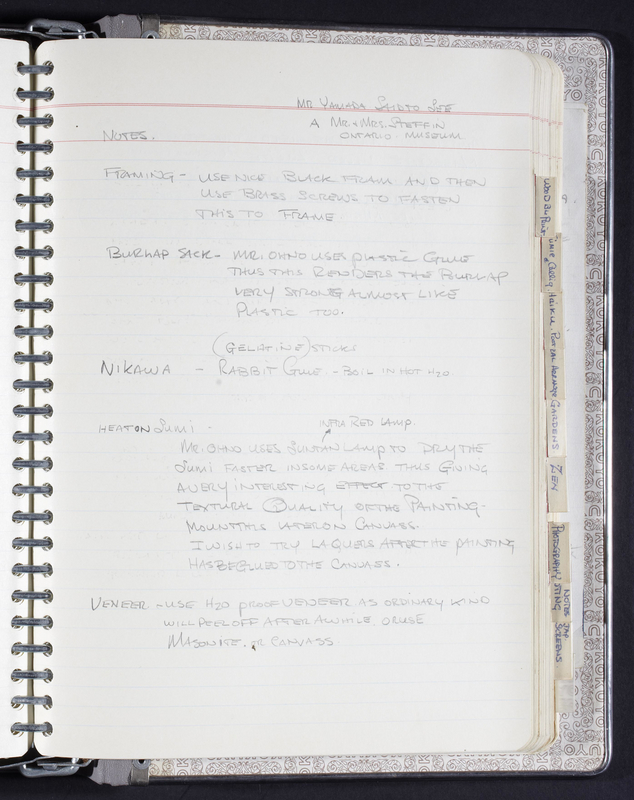 MR YAMADA SHOTO
A MR. & MRS. STEFFIN
ONTARIO. MUSEUM.
NOTES.
FRAMING - USE NICE BLACK FRAM. AND THEN
USE BRASS SCREWS TO FASTEN
THIS TO FRAME
BURLAP SACK - MR. OHNO USES PLASTIC GLUE
THUS THIS RENDERS THE BURLAP
VERY STRONG ALMOST LIKE
PLASTIC TOO.
(GELATINE) STICK
NIKAWA - RABBIT GLUE. - BOIL IN HOT H2O
HEAT ON SUMI -
INFRA RED LAMP.
MR. OHNO USES SUNTAN LAMP TO DRY THE
SUMI FASTER IN SOME AREAS THUS GIVING
A VERY INTERESTING EFFECT TO THE
TEXTURAL QUALITY OF THE PAINTING -
MOUNT THIS LATER ON CANVASS.
I WISH TO TRY LAQUERS AFTER THE PAINTING
HAS BE GLUED TO THE CANVASS.
VENEER. - USE H2O PROOF VENEER AS ORDINARY KIND
WILL PEEL OFF AFTER AWHILE. OR USE
MASONITE, OR CANVASS
WOOD BLK PRINT
HAIKU.
GARDENS
ZEN
PHOTOGRAPHY
NOTES JAP.
SCREENS
KOKUYO